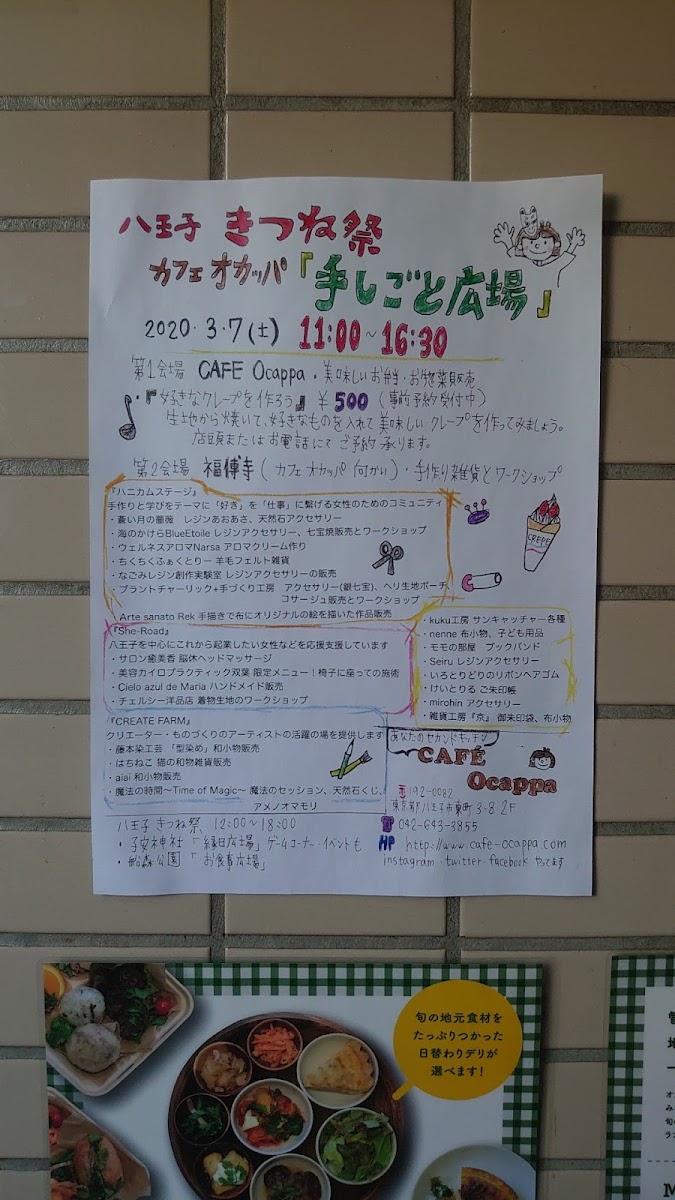 八王子 きつね祭
カフェ オカッパ 「手しごと広場」
2020・3・7(土) 11:00~16:30
第1会場 CAFE Ocappa・美味しいお弁当・お惣菜販売
・『好きなクレープを作ろう』￥500(事前予約受付中)
生地から焼いて、好きなものを入れて美味しいクレープを作ってみましょう。
店頭またはお電話にてご予約承ります。
第2会場 福傳寺(カフェオカッパ向かい)・手作り雑貨とワークショップ
『ハニカムステージ』
手作りと学びをテーマに「好き」を「仕事」に繋げる女性のためのコミュニティ
・蒼い月の薔薇 レジンあおあさ、天然石アクセサリー
・海のかけらBlueEtoile レジンアクセサリー、七宝焼販売とワークショップ
・ウェルネスアロマNarsa アロマクリーム作り
・ちくちくふぁくとりー 羊毛フェルト雑貨
・なごみレジン創作実験室 レジンアクセサリーの販売
・プラントチャーリック+手づくり工房 アクセサリー(銀七宝)、ヘリ生地ポーチ
コサージュ販売とワークショップ
・Arte sanato Rek 手描きで布にオリジナルの絵を描いた作品販売
『She-Road』
八王子を中心にこれから起業したい女性などを応援支援しています
・サロン癒美香 脳休ヘッドマッサージ
・美容カイロプラクティック双葉 限定メニュー！椅子に座っての施術
・Cielo azul de Maria ハンドメイド販売
・チェルシー洋品店 着物生地のワークショップ
『CREATE FARM』
クリエーター・ものづくりのアーティストの活躍の場を提供します
・藤本染工芸 「型染め」和小物販売
・はちねこ 猫の和物雑貨販売
・aiai 和小物販売
・魔法の時間〜Time of Magic〜 魔法のセッション、天然石くじ、
アメノオマモリ
・kuku工房 サンキャッチャー各種
・nenne 布小物、子ども用品
・モモの部屋 ブックバンド
・Seiru レジンアクセサリー
・いろとりどりのリボンヘアゴム
・けいとりる ご朱印帳
・mirohin アクセサリー
・雑貨工房『京』 御朱印袋、布小物
CREPE
あなたのセカンドキッチン
CAFÉ
Ocappa
〒192-0082
東京都八王子市東町3-8-2F
042-643-3855
HP http://www.cafe-ocappa.com
instagram・twitter・facebook やってます
八王子 きつね祭 12:00~18:00
・子安神社 「縁日広場」ゲームコーナー・イベントも
・船森公園 「お食事広場」
旬の地元食材を
たっぷりつかった
日替わりデリが
選べます！